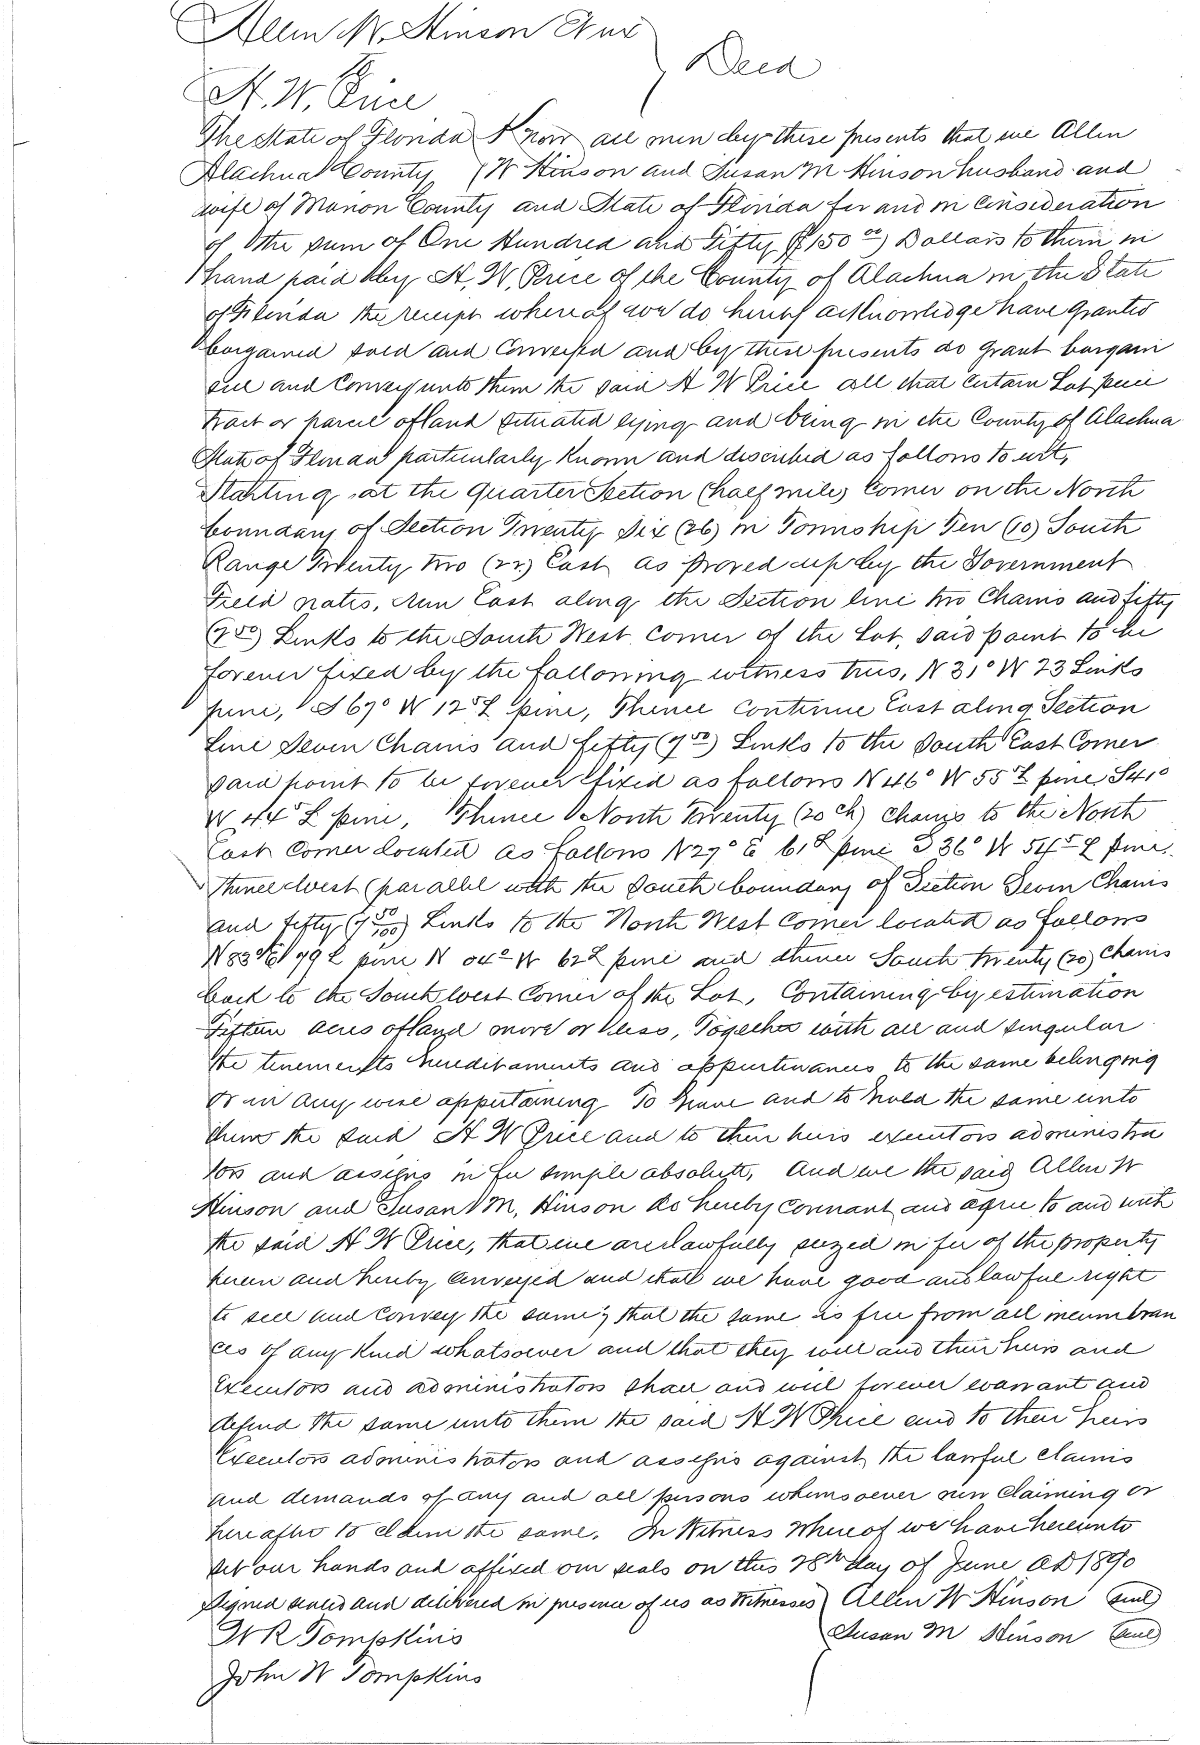 Allen W. Hinson Et ux
Deed
To
H. W. Price
The State of Florida Know all men by these presents that we Allen
Alachua County W Hinson and Susan M Hinson husband and
wife of Marion County and State of Florida for and in Consideration
of the sum of One Hundred and Fifty ($150 00) Dollars to them in
hand paid by H. W. Price of the County of Alachua in the State
of Florida the receipt whereof we do hereby acknowledge have granted
bargained sold and Conveyed and by these presents do grant bargain
sell and Convey unto them the said H W Price all that certain Lot piece
tract or parcel of land situated lying and being in the County of Alachua
State of Florida particularly known and described as follows to wit,
Starting at the Quarter Section (half mile) Corner on the North
boundary of Section Twenty Six (26) in Township Ten (10) South
Range Twenty two (22) East as proved up by the Government
Field notes, run East along the Section line two Chains and fifty
Links to the South West corner of the Lot, said point to be
forever fixed by the following witness trees, N 31° W 23 Links
pine, S 67° W 12 L pine, Thence continue East along Section
Line Seven Chains and fifty (7 50) Links to the South East Corner
said point to be forever fixed as follows N 46° W 55 L pine S 41°
W 44 L pine, Thence North Twenty (20 ch) chains to the North
East Corner located as follows N 27° E 61 L pine S 36° W 54 L pine,
thence West (parallel with the South boundary of Section Seven Chains
and fifty (7 50/100) Links to the North West Corner located as follows
N 83° E 79 L pine N 04° W 62 L pine and thence South twenty (20) Chains
back to the South West Corner of the Lot, Containing by estimation
Fifteen acres of land more or less, Together with all and singular
the tenements hereditaments and appurtenances to the same belonging
or in any wise appertaining To have and to hold the same unto
them the said H W Price and to their heirs executors administra
tors and assigns in fee simple absolute, And we the said Allen W
Hinson and Susan M, Hinson do hereby covenant and agree to and with
the said H W Price, that we are lawfully seized in fee of the property
herein and hereby conveyed and that we have good and lawful right
to sell and Convey the same; that the same is free from all incumbran
ces of any kind whatsoever and that they will and their heirs and
Executors and administrators shall and will forever warrant and
defend the same unto them the said H W Price and to their heirs
Executors administrators and assigns against the lawful claims
and demands of any and all persons whomsoever now claiming or
hereafter to claim the same. In Witness Whereof we have hereunto
set our hands and affixed our seals on this 28th day of June AD 1890
Signed sealed and delivered in presence of us as Witnesses Allen W Hinson (seal)
W R Tompkins Susan M Hinson (seal)
John W Tompkins